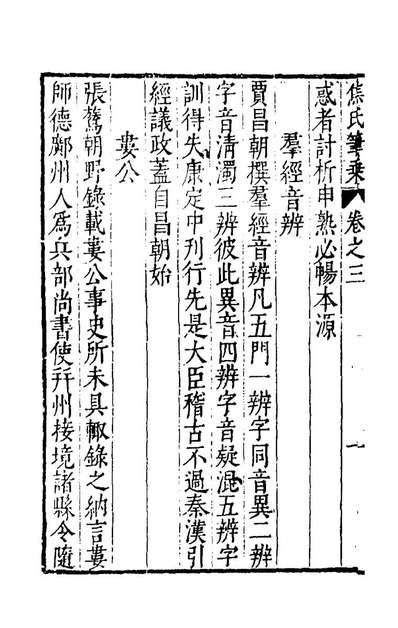 焦氏筆乘 卷之三 一
惑者計析申熟必暢本源
羣經音辨
賈昌朝撰羣經音辨凡五門一辨字同音異二辨
字音清濁三辨彼此異音四辨字音疑混五辨字
訓得失康定中刊行先是大臣稽古不過秦漢引
經議政蓋自昌朝始
婁公
張鷟朝野錄載婁公事史所未具輙錄之納言婁
師德鄭州人爲兵部尚書使幷州接境諸縣令隨